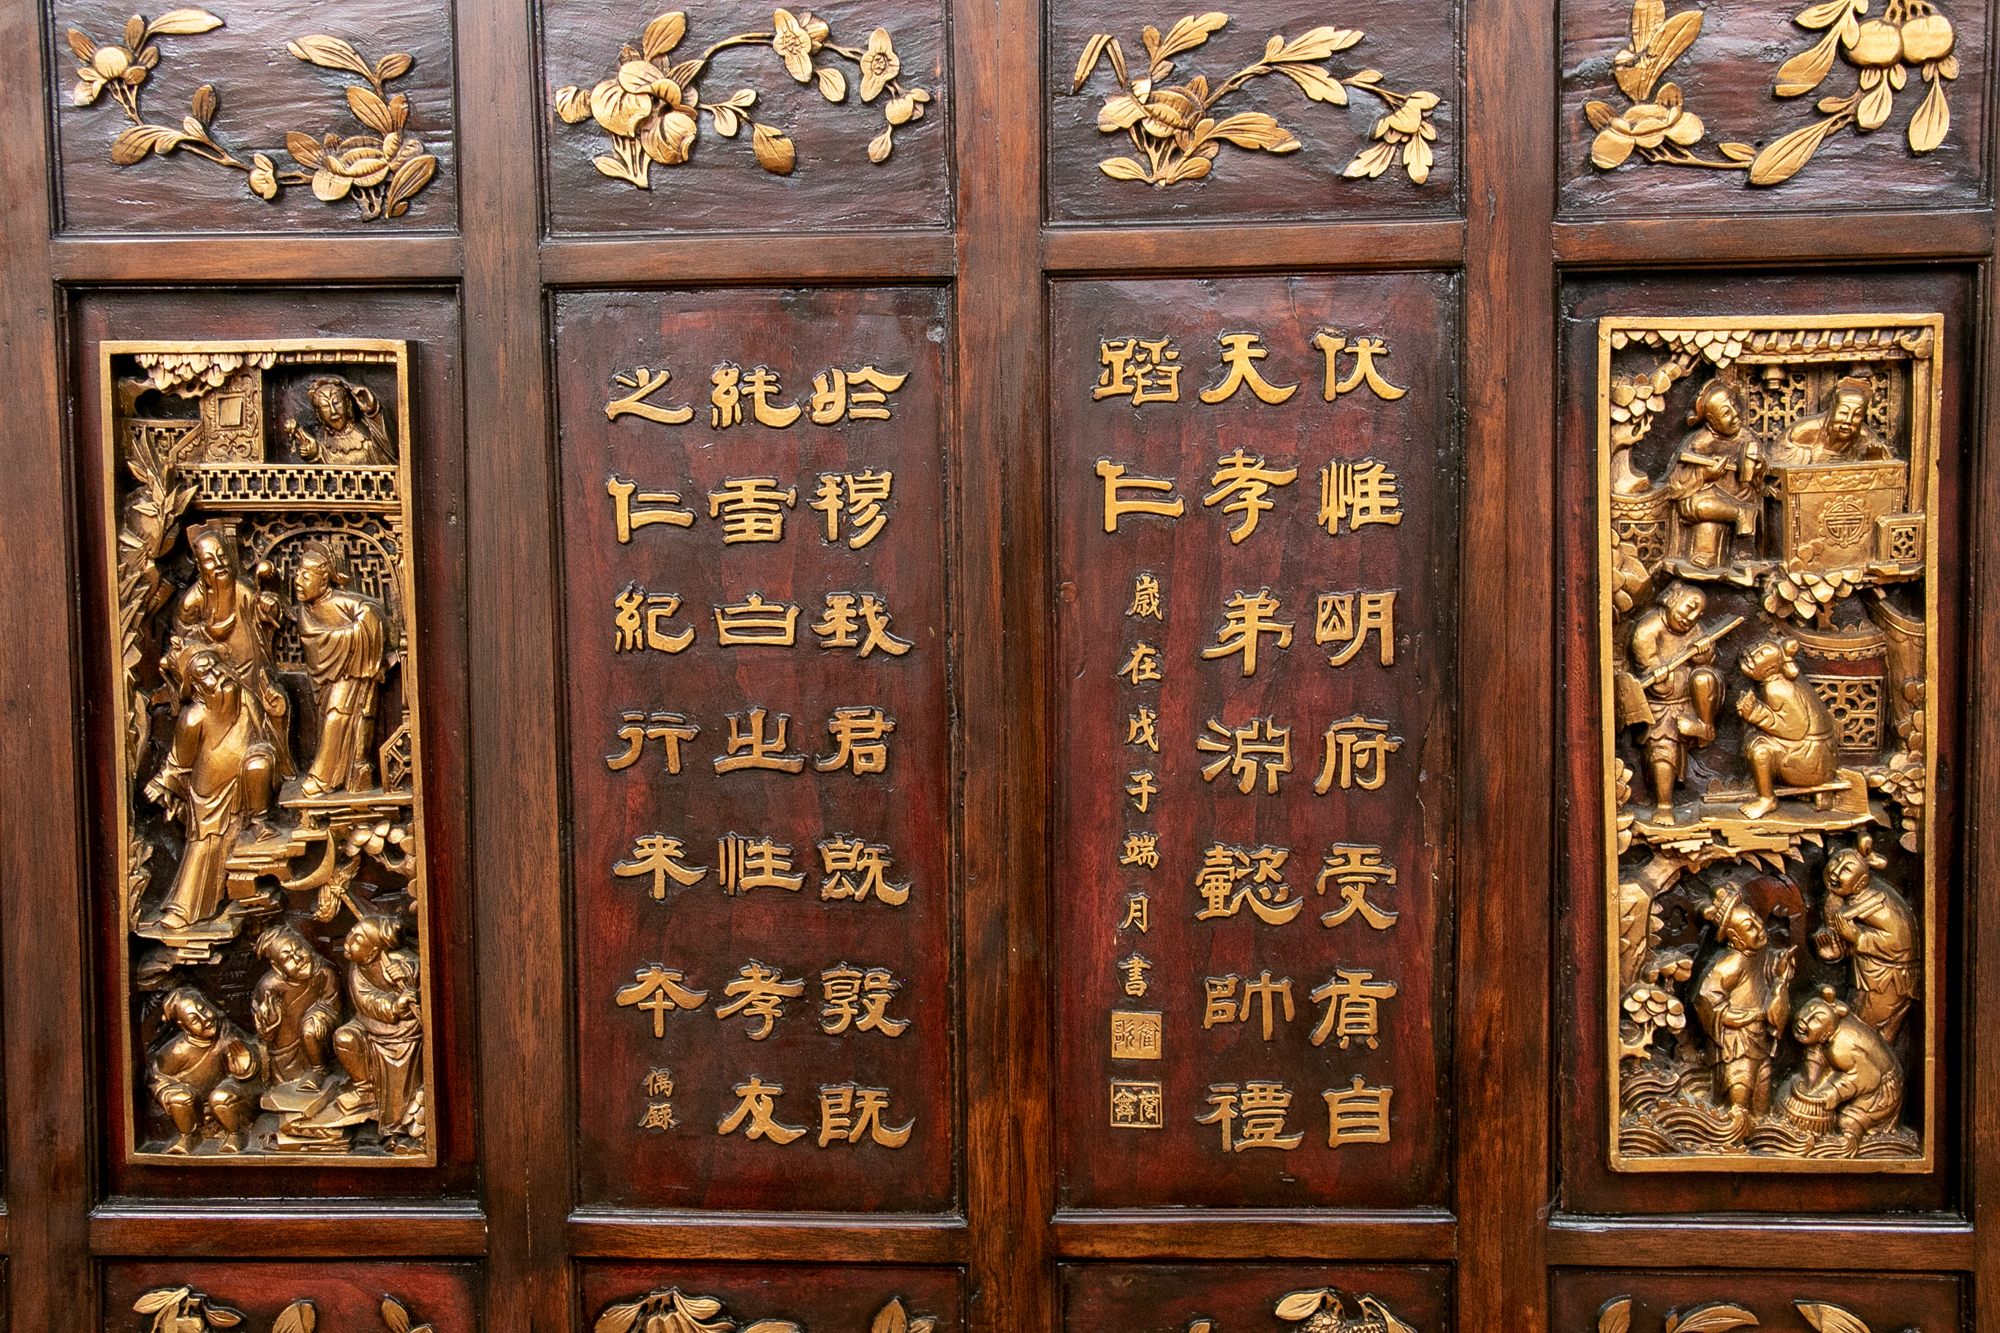 伏惟明府受質自
天孝弟淵懿帥禮
蹈仁
歲在戊子端月書
於穆我君既敦既
純雪白之性孝友
之仁紀行来本
偶錄